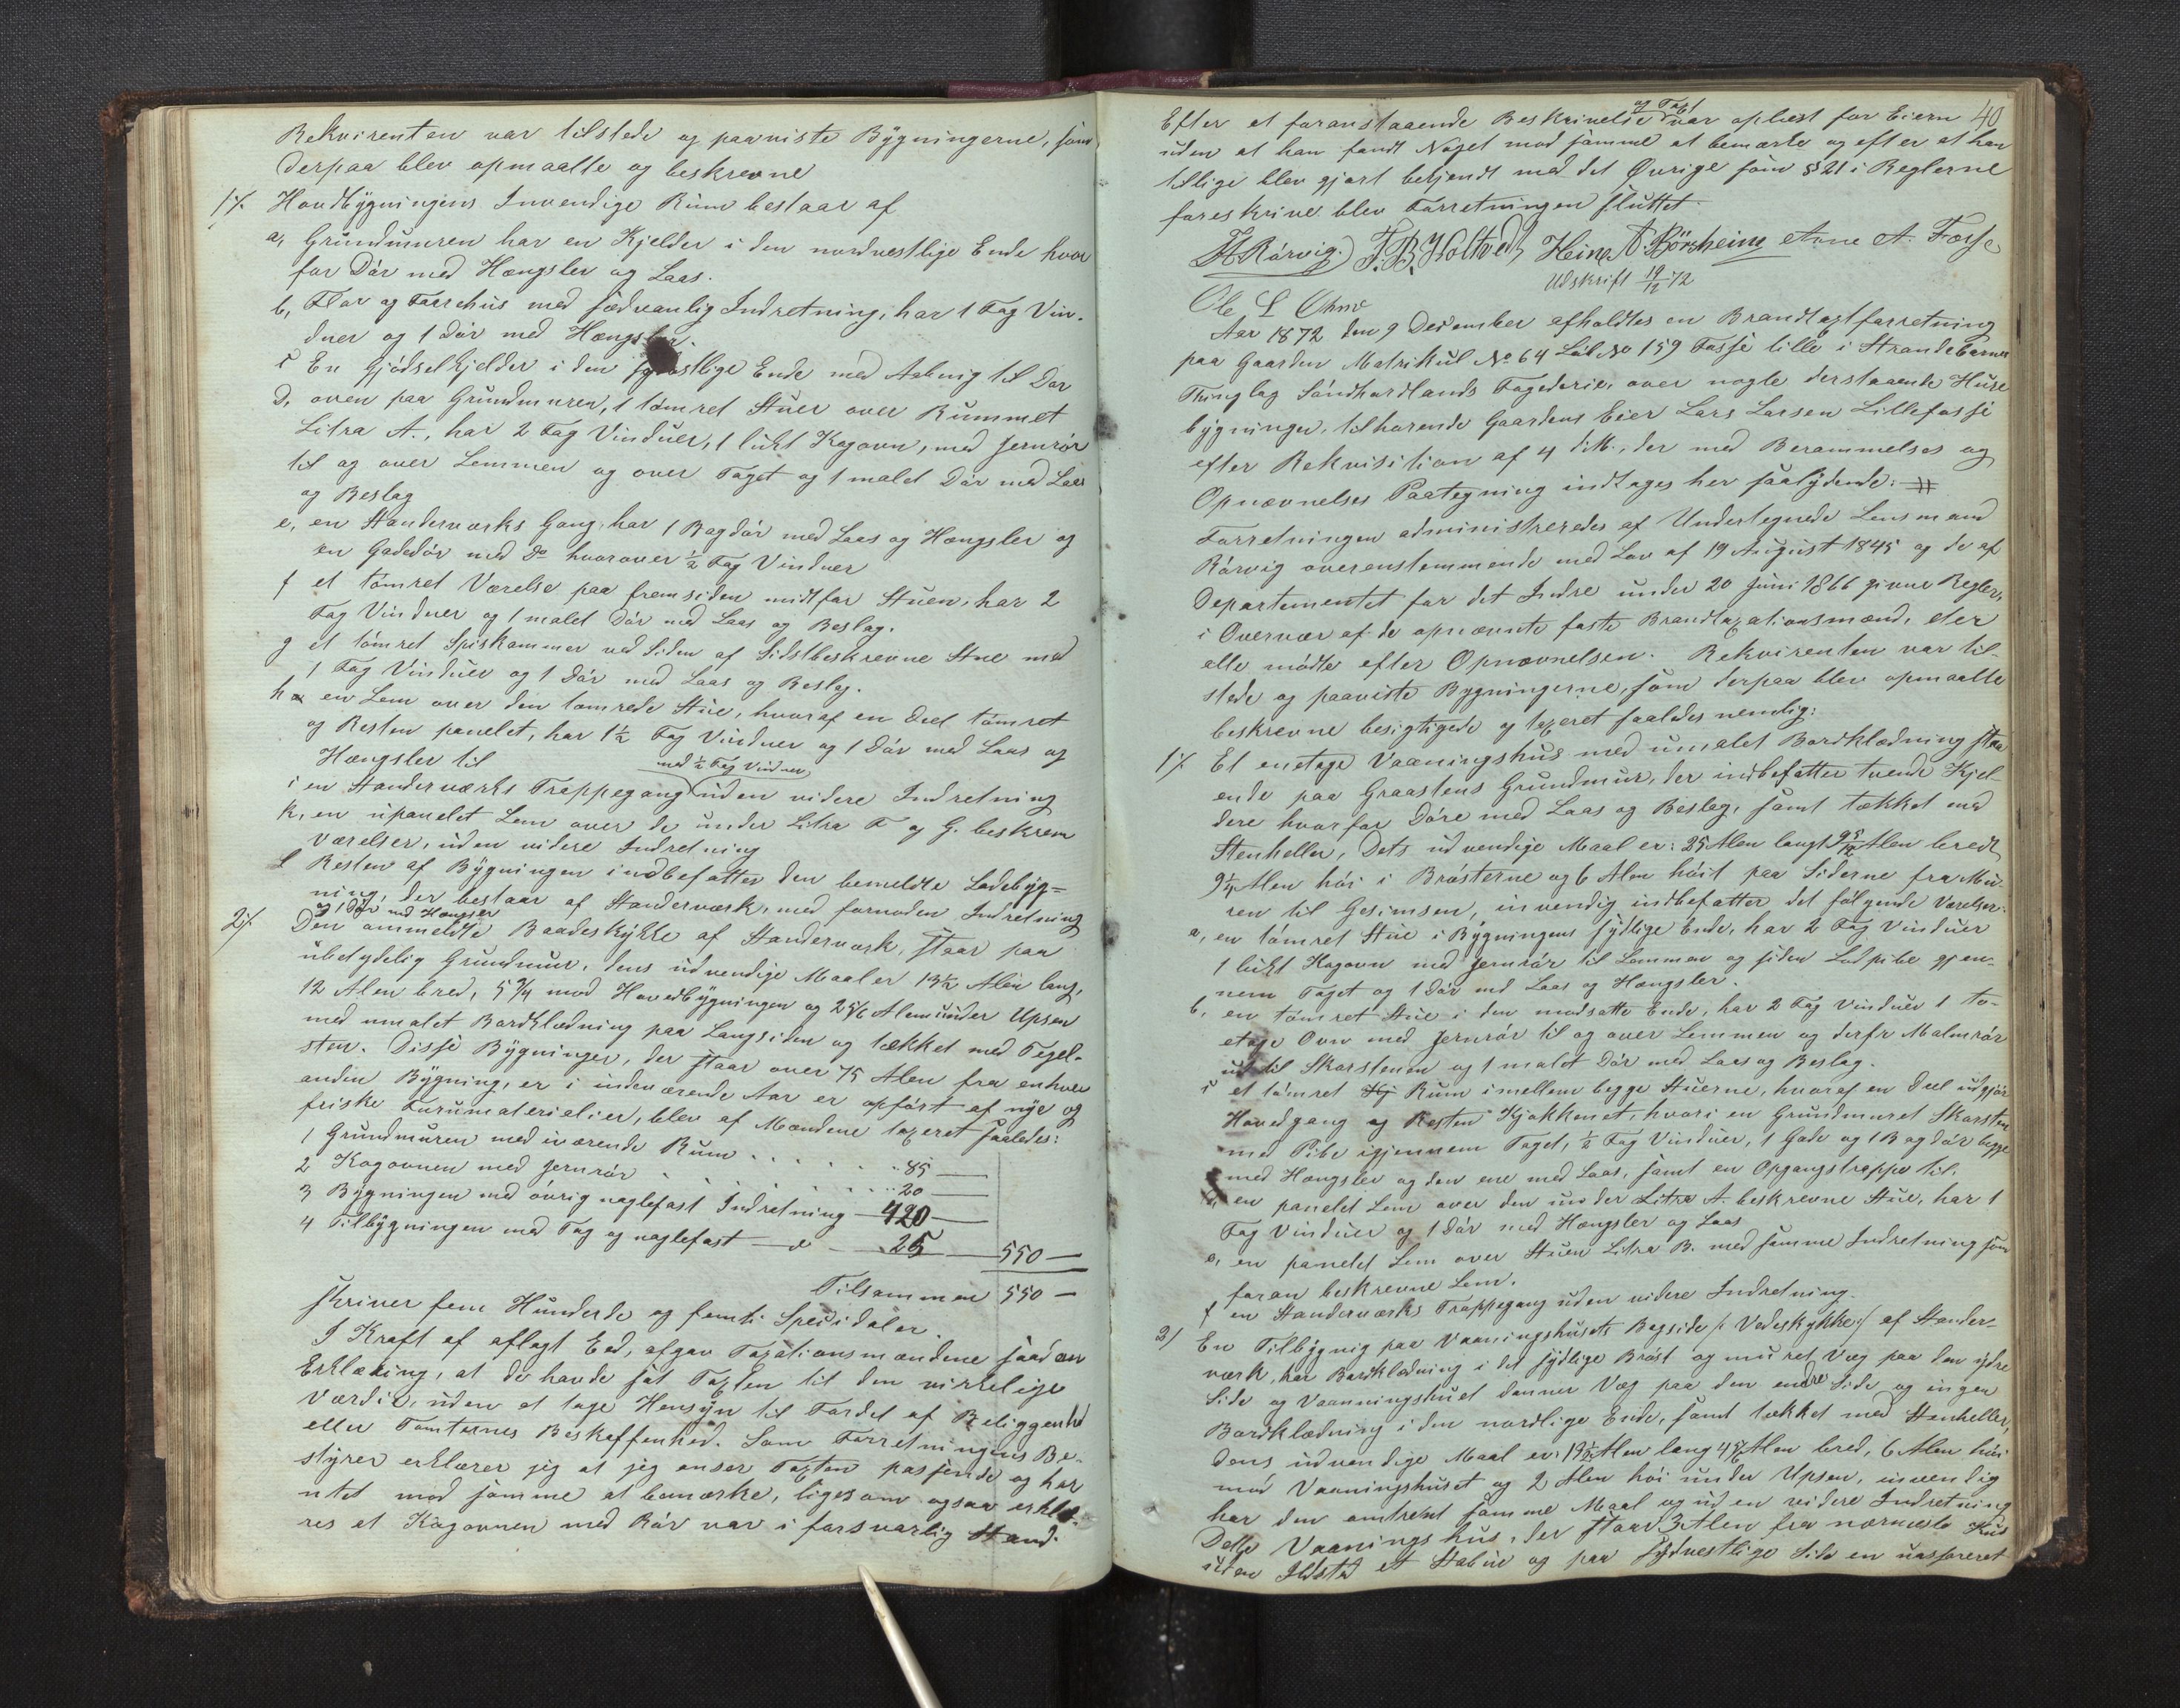 Rekvirenten var tilstede og paaviste Bygningerne, som
derpaa blev opmaalte og beskrevne
1/. Hovedbygningens Invendige Rum bestaar af
a, Grundmuren har en Kjelder i den nordvestlige Ende hvor
for Dør med Hængsler og Laas.
b, Flor og Forrehus med sædvanlig Indretning, har 1 Fag Vin-
duer og 1 Dør med Hængsler.
c En Gjødselkjelder i den sydostlige Ende med Aabnig til Dør
d, oven paa Grundmuren, 1 tømret Stuer over Rummet
Litra A., har 2 Fag Vinduer, 1 lukt Kogovn, med Jernrør
til og over Lemmen og over Taget og 1 malet Dør med Laas
og Beslag
e, en Standerværks Gang, har 1 Bagdør med Laas og Hængsler og
en Gadedør med Do hvorover ½ Fag Vinduer
f et tømret Værelse paa fremsiden midtfor Stuen, har 2
Fag Vinduer og 1 malet Dør med Laas og Beslag.
g et tømret Spiskammer ved Siden af Sidstbeskrevne Stue med
1 Fag Vinduer og 1 Dør med Laas og Beslag.
h en Lem over den tømrede Stue, hvoraf en Deel tømret
og Resten panelet, har 1½ Fag Vinduer og 1 Dør med Laas og
Hængsler til
med ½ Fag Vinduer,
i en Standerværks Trappegang uden videre Indretning
k, en upanelet Lem over de under Litra F og G. beskrevn
Værelser, uden videre Indretning
l Resten af Bygningen indbefatter den bemeldte Ladebyg=
ning, der bestaar af Standerværk, med fornøden Indretning
og 1 Dør med Hængser
2/. Den ommeldte Baadeskykke af Standerværk, staar paa
ubetydelig Grundmuur, dens udvendige Maal er 13½ Alen lang,
12 Alen bred, 5¾ mod Hovedbygningen og 2⅚ Alen under Upsen
med umalet Bordklædning paa Langsiden og tækket med Tegel-
sten. Disse Bygninger, der staar over 75 Alen fra enhver
anden Bygning, er i indeværende Aar er opført af nye og
friske Furumaterialier, blev af Mændene taxeret saaledes:
1 Grundmuren med iværende Rum . . . . . . . 85 —
2 Kogovnen med Jernrør . . . . . . . 20 —
3 Bygningen med øvrig naglefast Indretning — 420 —
4 Tilbygningen med Tag og naglefast — d — 25 — 550 —
Tilsammen 550 —
skriver fem Hunderde og femti Speisidaler.
I Kraft af aflagt Eed, afgav Taxationsmændene saadan
Erklæring, at de havde sat Taxten til den virkelige
Værdie, uden at tage Hensyn til Fordel af Beliggenhed
eller Tomternes Beskaffenhed. Som Forretningens Be-
styrer erklærer jeg at jeg anser Taxten passende og har
ntet mod samme at bemærke, ligesom ogsaa erklæ-
res at Kogovnen med Rør var i forsvarlig Stand.
40
og Taxt
Efter at foranstaaende Beskrivelse var oplæst for Eieren
uden at han fandt Noget mod samme at bemærke og efter at han
tillige blev gjort bekjendt med det Øvrige som § 21 i Reglerne
foreskrive blev Forretningen sluttet.
H Rørvig. T. B. Holtvedt Heine A. Børsheim Arne A. Fosse
Udskrift 19/12 72
Ole L
Aar 1872 den 9 December afholdtes en Brandtaxtforretning
paa Gaarden Matrikul No 64 Løb. No 159 Fosse lille i Strandebarms
Thinglag Søndhordlands Fogederie, over nogle derstaaende Huse
bygninger, tilhørende Gaardens Eier Lars Larsen Lillefosse
efter Rekvisition af 4 d.M., der med Berammelses og
Opnævnelses Paategning indtages her saalydende:
Forretningen administreredes af Undertegnede Lensmand
Rørvig overensstemmende med Lov af 19 August 1845 og de af
Departementet for det Indre under 20 Juni 1866 givne Regler,
i Overvær af de opnævnte faste Brandtaxationsmænd, der
alle mødte efter Opnævnelsen. Rekvirenten var til-
stede og paaviste Bygningerne, som derpaa blev opmaalte
beskrevne besigtigede og taxeret saaledes nemlig:
1/. Et enetage Vaaningshus med umalet Bordklædning staa
ende paa Graastens Grundmur, der indbefatter tvende Kjel-
dere hvorfor Døre med Laas og Beslag, samt tækket med
Stenheller, Dets udvendige Maal er: 25 Alen langt 9 5/12 Alen bredt
9¼ Alen høi i Brøsterne og 6 Alen høit paa Siderne fra Mu-
ren til Gesimsen, invendig indbefatter det følgende Værelser:
a, en tømret Stue i Bygningens sydlige Ende, har 2 Fag Vinduer
1 lukt Kogovn med Jernrør til Lemmen og siden Lodpibe gjen-
nem Taget og 1 Dør med Laas og Hængsler.
b, en tømret Stue i den modsatte Ende, har 2 Fag Vinduer 1 to-
etage Ovn med Jernrør til og over Lemmen og derfr Malmrør
ud til Skorstenen og 1 malet Dør med Laas og Beslag.
c et tømret Rum imellem begge Stuerne, hvoraf en Deel udgjør
Hovedgang og Resten Kjøkkenet, hvori en Grundmuret Skorsten
med Pibe igjennem Taget, ½ Fag Vinduer, 1 Gade og 1 Bagdør begge
med Hængsler og den ene med Laas, samt en Opgangstrappe til.
d, en panelet Lem over den under Litra A. beskrevne Stue, har 1
Fag Vinduer og 1 Dør med Hængsler og Laas
e, en panelet Lem over Stuen Litra B. med samme Indretning som
foran beskrevne Lem.
f en Standerværks Trappegang uden videre Indretning.
2/ En Tilbygnig paa Vaaningshusets Bagside /: Vedeskykke :/ af Stander-
værk, har Bordklædning i det sydlige Brøst og muret Væg paa den ydre
Side og Vaaningshuset danner Væg paa den endre Side og ingen
Bordklædning i den nordlige Ende, samt tækket med Stenheller,
dens udvendige Maal er: 19½ Alen lang 4⅚ Alen bred, 6 Alen høi
mod Vaaningshuset og 2 Alen høi under Upsen, invendig
har den omtrent samme Maal og uden videre Indretning
Dette Vaaningshus, der staar 3 Alen fra nærmeste Hus
uden Ildsted et Stabur og paa sydvestlige Side en uasfureret